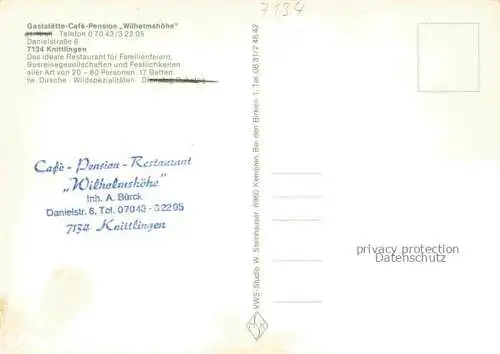 7134
Gaststätte-Café-Pension „Wilhelmshöhe"
Telefon 0 70 43/3 22 05
Danielstraße 6
7134 Knittlingen
Das ideale Restaurant für Familienfeiern,
Busreisegesellschaften und Festlichkeiten
aller Art von 20 – 80 Personen. 17 Betten,
tw. Dusche · Wildspezialitäten. Dienstag Ruhetag
Café - Pension - Restaurant
„Wilhelmshöhe"
Inh. A. Bürck
Danielstr. 6, Tel. 07043 - 32205
7134 Knittlingen
VWS-Studio W. Steinhauser, 8960 Kempten, Bei den Birken 1, Tel. 08 31/2 46 42
privacy protection
Datenschutz